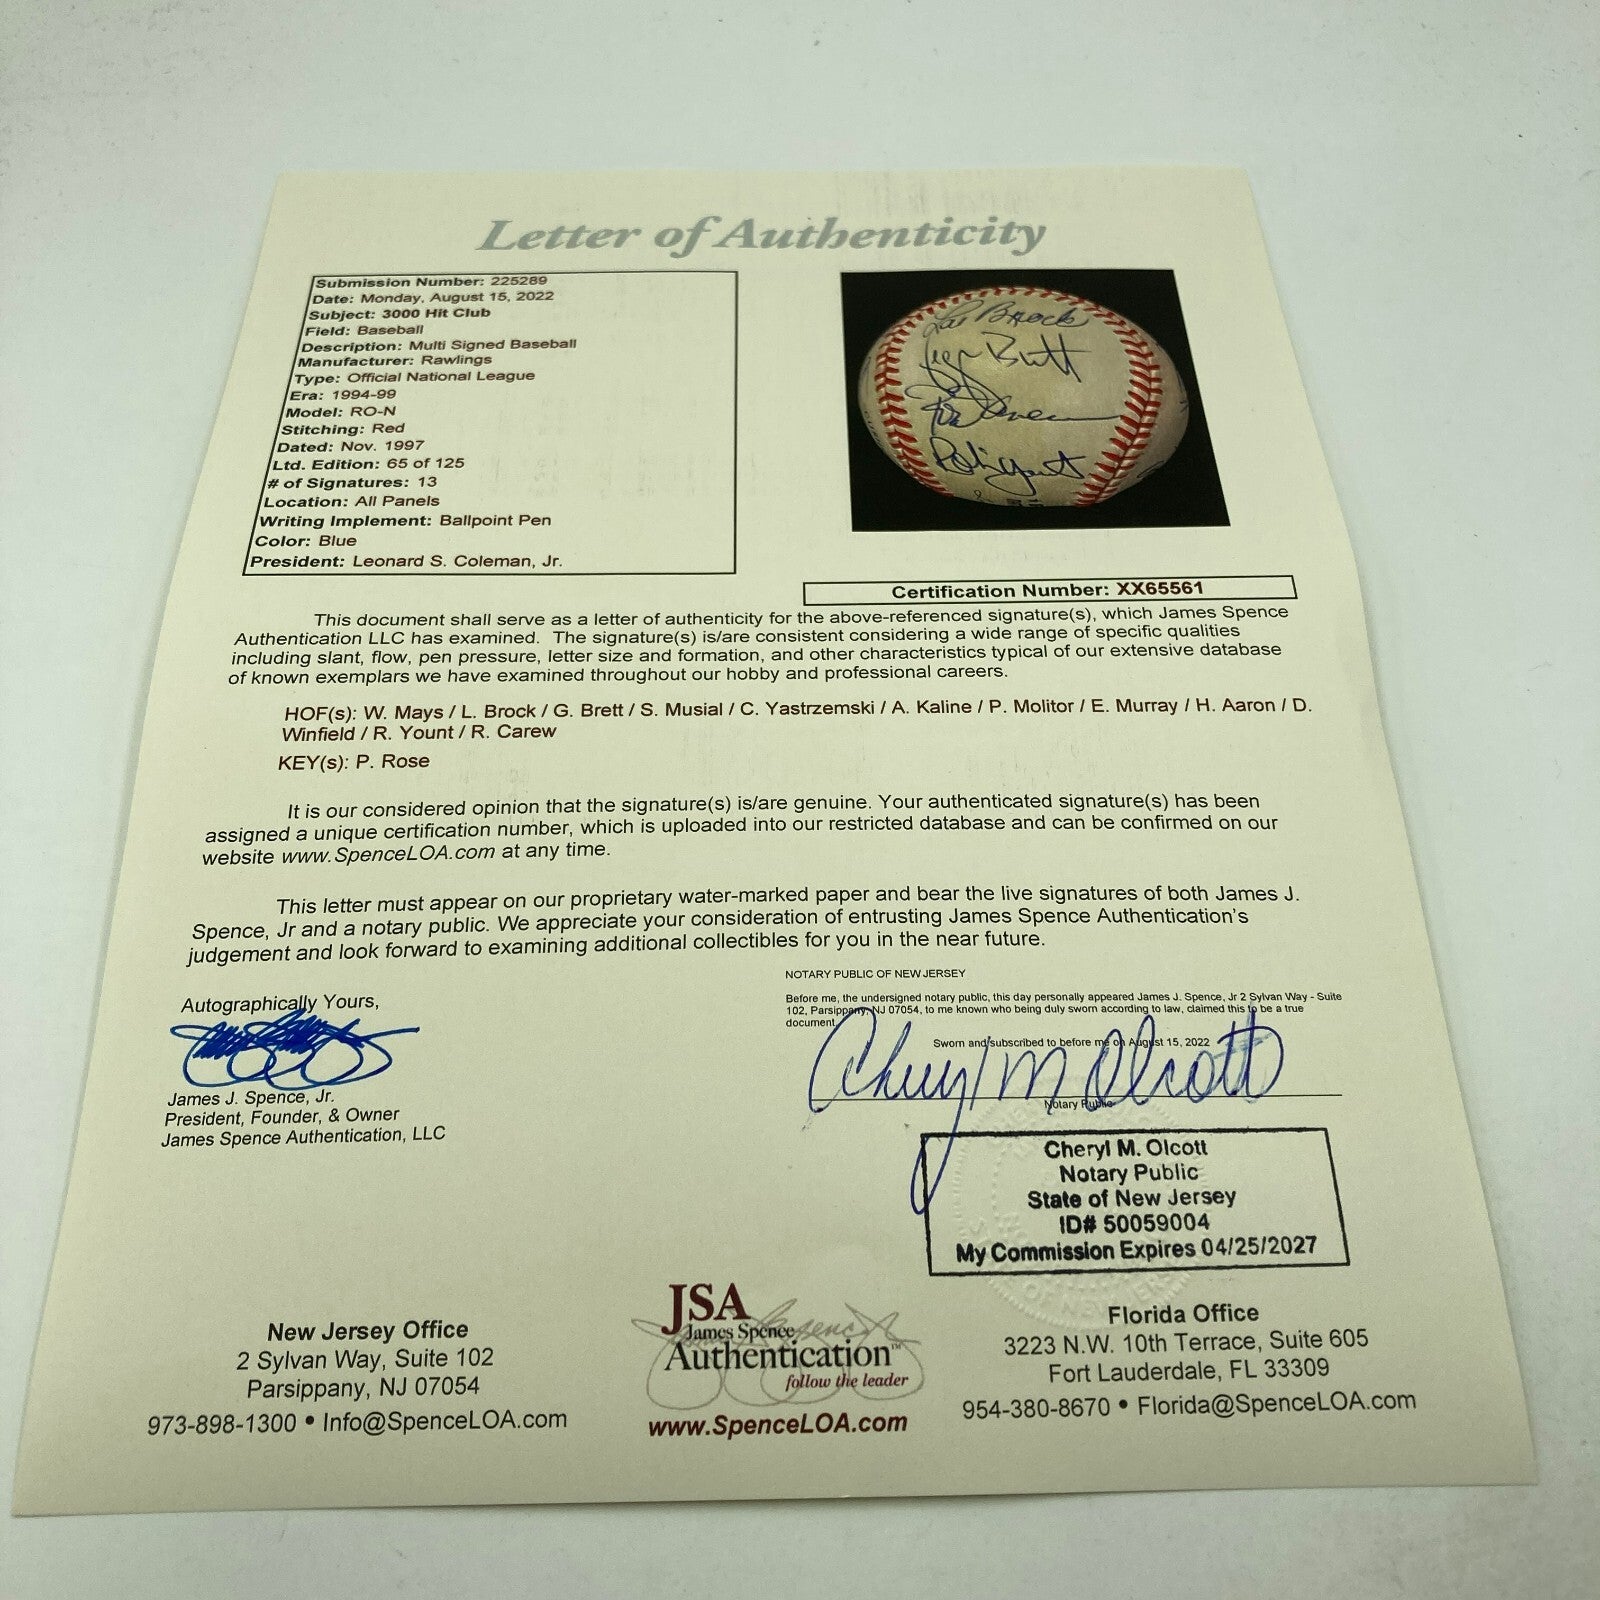 Letter of Authenticity
Submission Number: 225289
Date: Monday, August 15, 2022
Subject: 3000 Hit Club
Field: Baseball
Description: Multi Signed Baseball
Manufacturer: Rawlings
Type: Official National League
Era: 1994-99
Model: RO-N
Stitching: Red
Dated: Nov. 1997
Ltd. Edition: 65 of 125
# of Signatures: 13
Location: All Panels
Writing Implement: Ballpoint Pen
Color: Blue
President: Leonard S. Coleman, Jr.
Lou Brock
George Brett
Rod Carew
Robin Yount
Certification Number: XX65561
This document shall serve as a letter of authenticity for the above-referenced signature(s), which James Spence
Authentication LLC has examined. The signature(s) is/are consistent considering a wide range of specific qualities
including slant, flow, pen pressure, letter size and formation, and other characteristics typical of our extensive database
of known exemplars we have examined throughout our hobby and professional careers.
HOF(s): W. Mays / L. Brock / G. Brett / S. Musial / C. Yastrzemski / A. Kaline / P. Molitor / E. Murray / H. Aaron / D.
Winfield / R. Yount / R. Carew
KEY(s): P. Rose
It is our considered opinion that the signature(s) is/are genuine. Your authenticated signature(s) has been
assigned a unique certification number, which is uploaded into our restricted database and can be confirmed on our
website www.SpenceLOA.com at any time.
This letter must appear on our proprietary water-marked paper and bear the live signatures of both James J.
Spence, Jr and a notary public. We appreciate your consideration of entrusting James Spence Authentication's
judgement and look forward to examining additional collectibles for you in the near future.
NOTARY PUBLIC OF NEW JERSEY
Before me, the undersigned notary public, this day personally appeared James J. Spence, Jr 2 Sylvan Way - Suite
102, Parsippany, NJ 07054, to me known who being duly sworn according to law, claimed this to be a true
document.
Sworn and subscribed to before me on August 15, 2022
Cheryl M Olcott
Notary Public
Autographically Yours,
James J. Spence, Jr.
President, Founder, & Owner
James Spence Authentication, LLC
Cheryl M. Olcott
Notary Public
State of New Jersey
ID# 50059004
My Commission Expires 04/25/2027
New Jersey Office
2 Sylvan Way, Suite 102
Parsippany, NJ 07054
973-898-1300 • Info@SpenceLOA.com
JSA
James Spence
Authentication™
follow the leader
www.SpenceLOA.com
Florida Office
3223 N.W. 10th Terrace, Suite 605
Fort Lauderdale, FL 33309
954-380-8670 • Florida@SpenceLOA.com